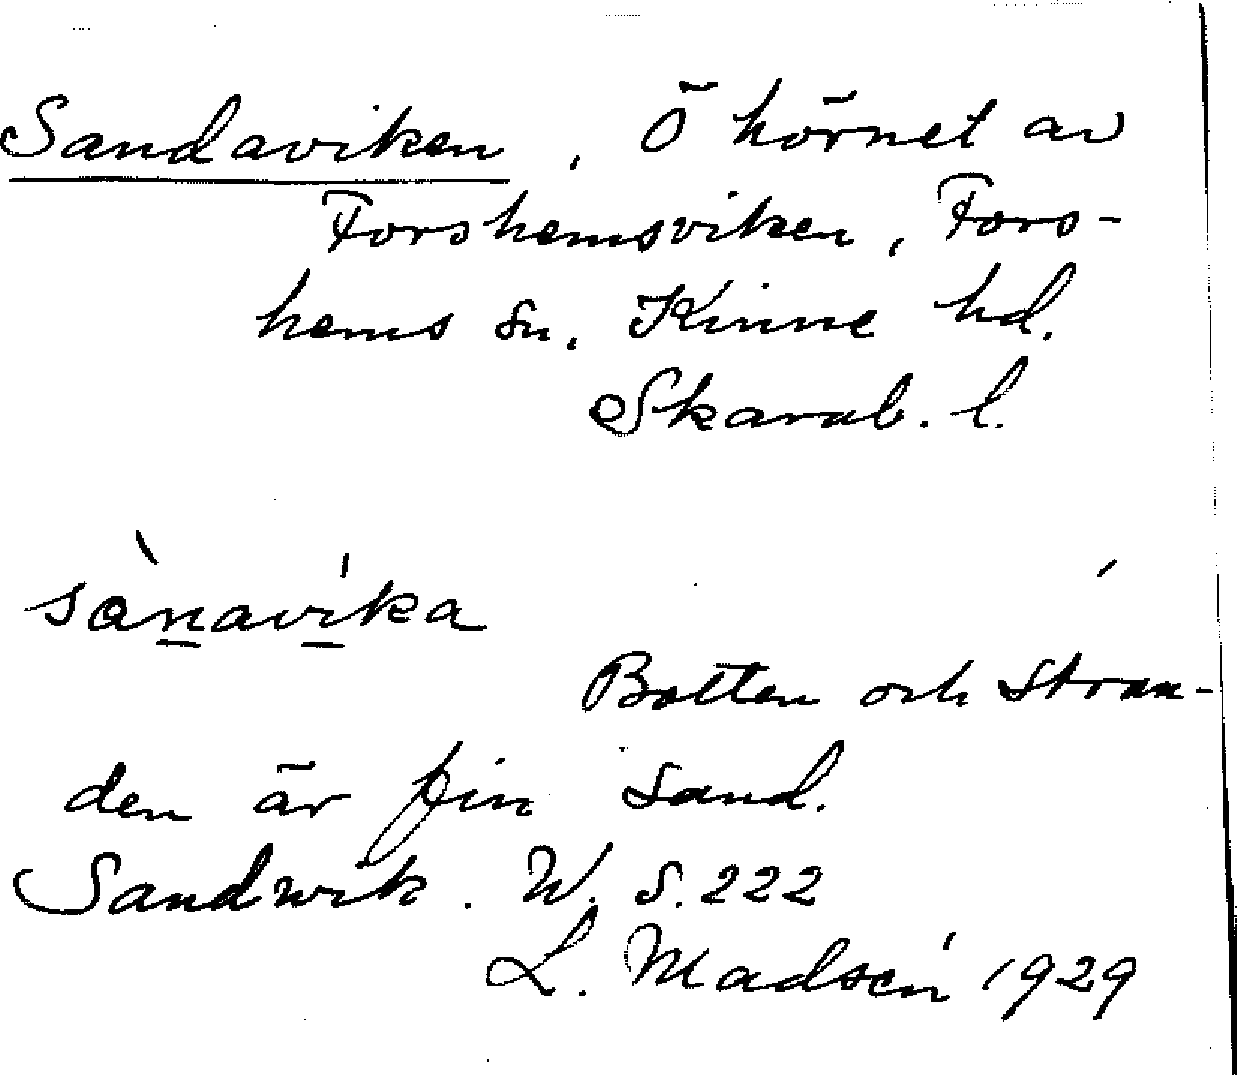 Sandaviken, Ö hörnet av
Forshemsviken, Fors-
hems sn, Kinne hd.
Skarab. l.
sànavi'ka
Botten och stran-
den är fin sand.
Sandwik. W. S. 222
L. Madsén 1929